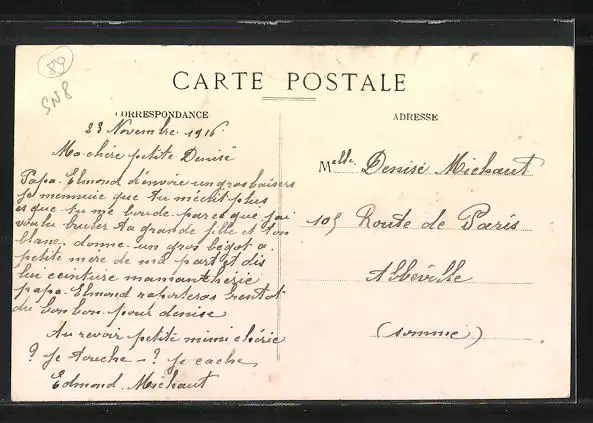 89
SN8
CARTE POSTALE
CORRESPONDANCE
ADRESSE
23 Novembre 1916
Ma chére petite Denise
Papa Elmond d'envoie un gros baisers
je mennuie que tu mécrit plus
es que tu me boude parce que j'ai
voulu bruler ta grande fille et ton
blane. donne un gros bégot a
petite mere de ma part et dis
lui ceinture maman cherie
papa. Elmond raporteras bientot
du bonbon pour denise
Au revoir petite mimi chérie
? je touche - ? je cache
Edmond Michaut
Melle Denise Michaut
105 Route de Paris
Abbéville
(somme)